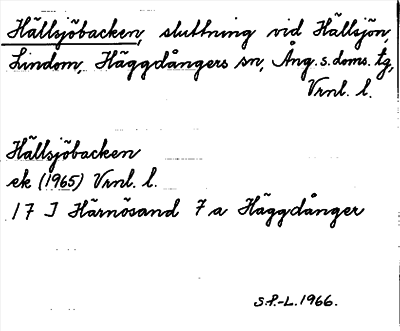 Hällsjöbacken, sluttning vid Hällsjön,
Lindom, Häggdångers sn, Ång. s. doms. tg,
Vrnl. l.
Hällsjöbacken
ek (1965) Vrnl. l.
17 I Härnösand 7 a Häggdånger
S.P.-L. 1966.